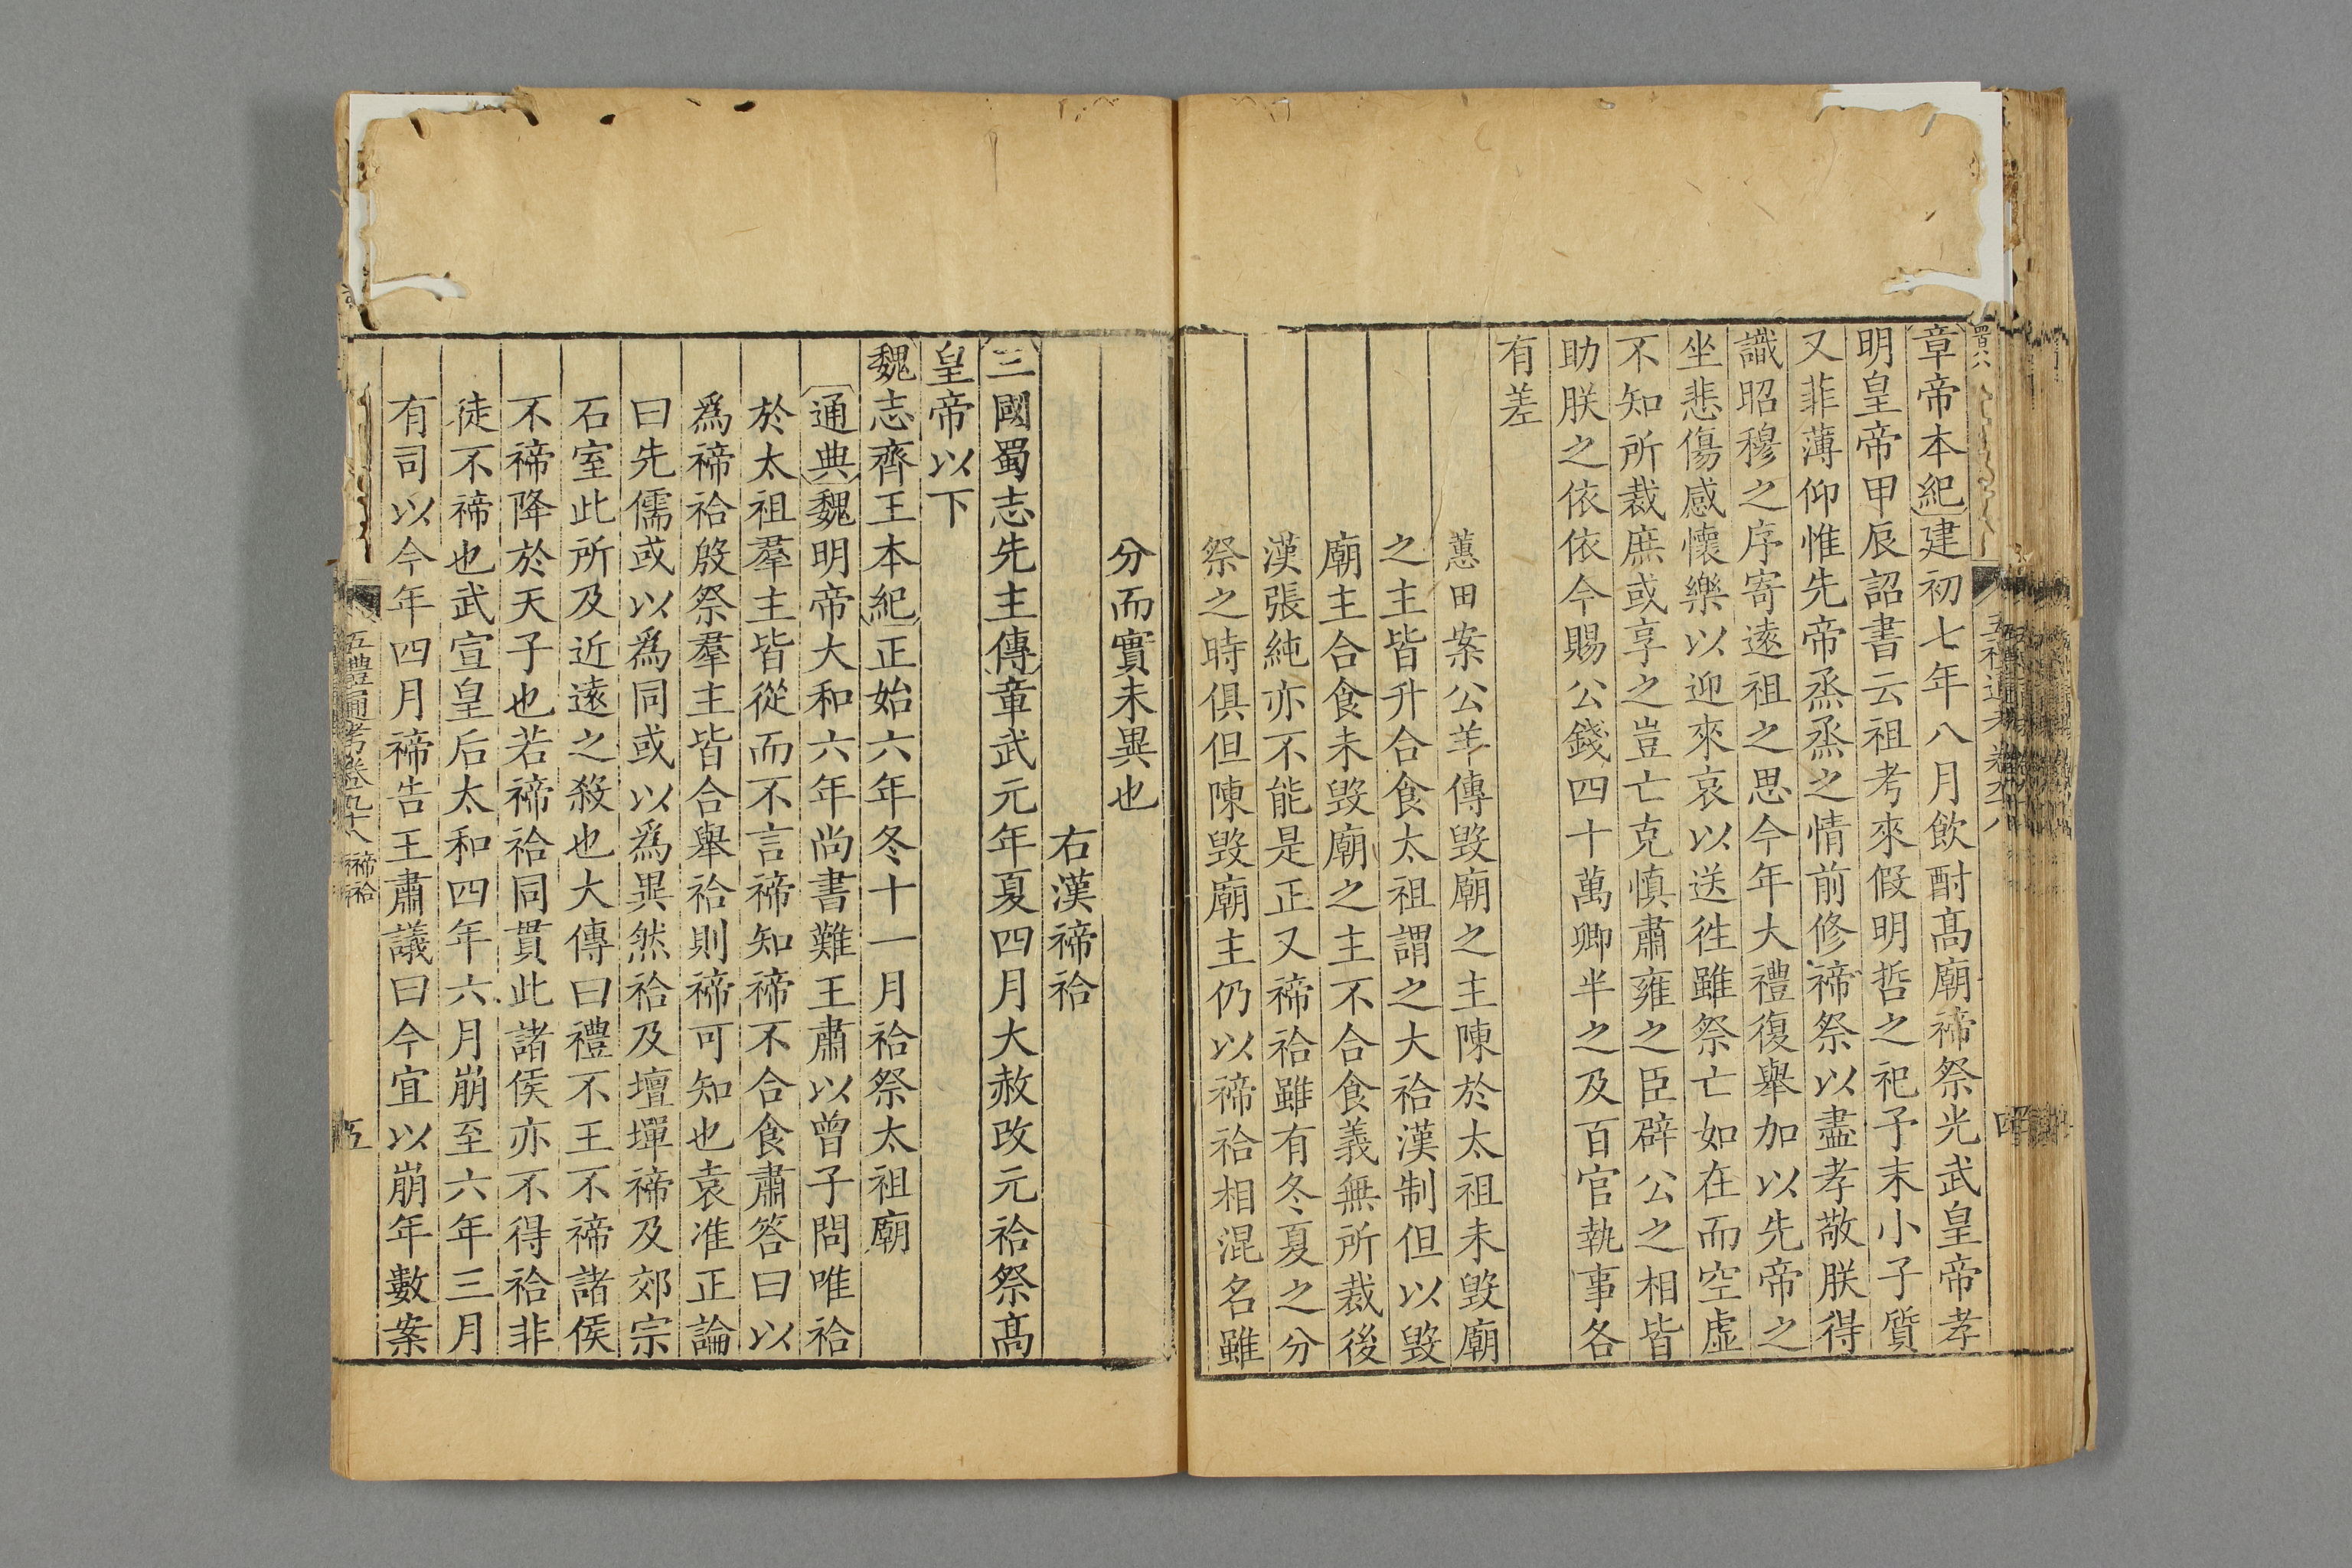 章帝本紀建初七年八月飲酎髙廟禘祭光武皇帝孝
明皇帝甲辰詔書云祖考來假明哲之祀予末小子質
又菲薄仰惟先帝烝烝之情前修禘祭以盡孝敬朕得
識昭穆之序寄逺祖之思今年大禮復舉加以先帝之
坐悲傷感懷樂以迎來哀以送徃雖祭亡如在而空虚
不知所裁庶或享之豈亡克慎肅雍之臣辟公之相皆
助朕之依依今賜公錢四十萬卿半之及百官執事各
有差
蕙田案公羊傳毀廟之主陳於太祖未毀廟
之主皆升合食太祖謂之大祫漢制但以毀
廟主合食未毀廟之主不合食義無所裁後
漢張純亦不能是正又禘祫雖有冬夏之分
祭之時俱但陳毀廟主仍以禘祫相混名雖
分而實未異也
右漢禘祫
三國蜀志先主傳章武元年夏四月大赦改元祫祭髙
皇帝以下
魏志齊王本紀正始六年冬十一月祫祭太祖廟
通典魏明帝大和六年尚書難王肅以曾子問唯祫
於太祖羣主皆從而不言禘知禘不合食肅答曰以
爲禘祫殷祭羣主皆合舉祫則禘可知也袁准正論
曰先儒或以爲同或以爲異然祫及壇墠禘及郊宗
石室此所及近逺之殺也大傳曰禮不王不禘諸侯
不禘降於天子也若禘祫同貫此諸侯亦不得祫非
徒不禘也武宣皇后太和四年六月崩至六年三月
有司以今年四月禘告王肅議曰今宜以崩年數案
五禮通考卷九十八 禘祫
五